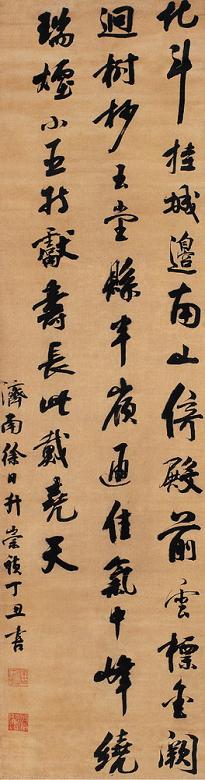 北斗挂城邊南山倚殿前雲標金闕
迥樹杪玉堂縣半嶺通佳氣中峰繞
瑞煙小臣持獻壽長此戴堯天
濟南徐日升崇禎丁丑書